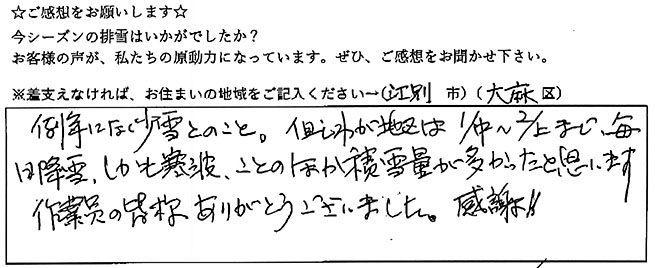 ☆ご感想をお願いします☆
今シーズンの排雪はいかがでしたか?
お客様の声が、私たちの原動力になっています。ぜひ、ご感想をお聞かせ下さい。
※差支えなければ、お住まいの地域をご記入ください→(江別 市)(大麻 区)
例年になく少雪とのこと。但しわが地区は1/中~2/上まで、毎
日降雪、しかも寒波、ことのほか積雪量が多かったと思います
作業員の皆様ありがとうございました。感謝!!